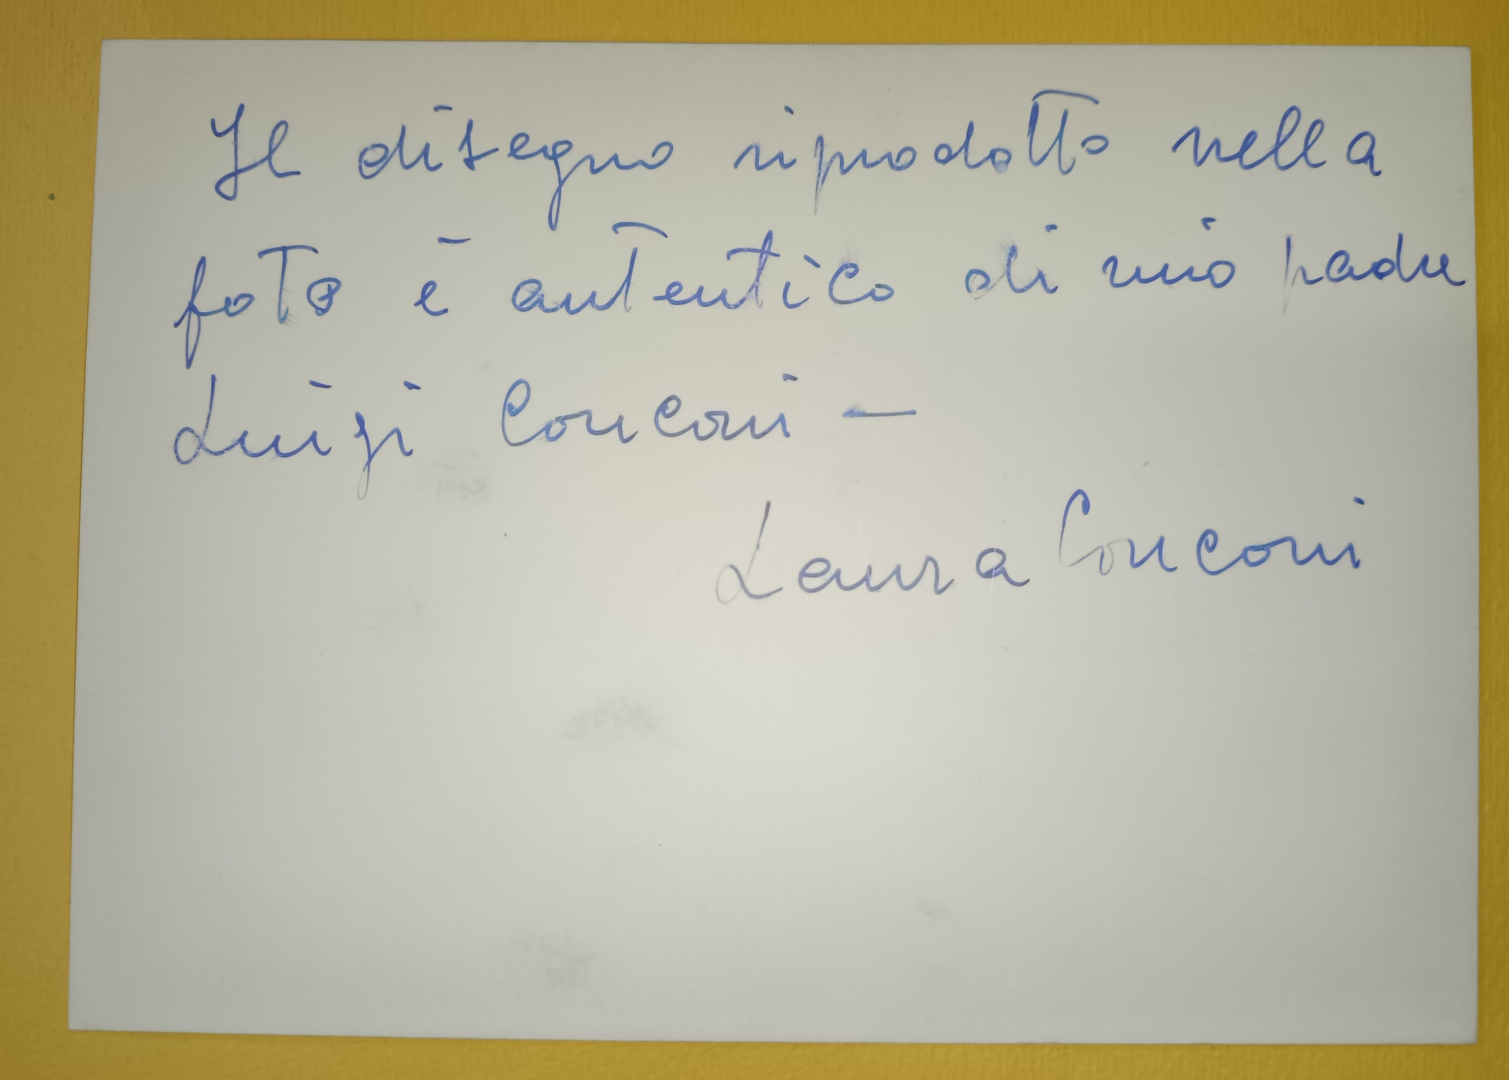 Il disegno riprodotto nella
foto è autentico di mio padre
Luigi Conconi —
Laura Conconi